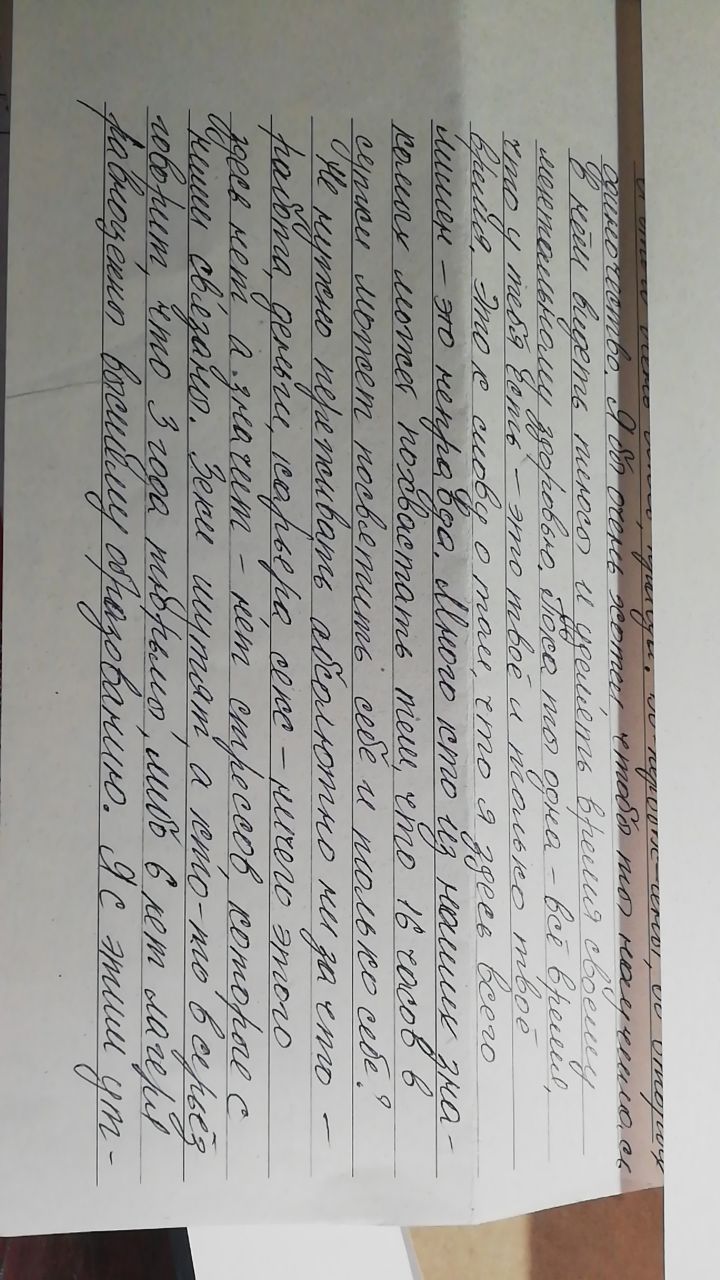 одиночество. Я бы очень хотел, чтобы ты научилась
в нём видеть плюсы и уделять время своему
ментальному здоровью. Пока ты одна – всё время,
что у тебя есть – это твоё и только твоё
время. Это к слову о том, что я здесь всего
лишен – это неправда. Много кто из наших зна-
комых может похвастать тем, что 16 часов в
сутки может посветить себе и только себе?
Не нужно переживать абсолютно ни за что –
работа, деньги, карьера, секс – ничего этого
здесь нет а значит – нет стрессов, которые с
ними связаны. Зеки шутят а кто-то всерьёз
говорит, что 3 года тюрьмы, либо 6 лет лагеря
равноценно высшему образованию. Я с этим ут-